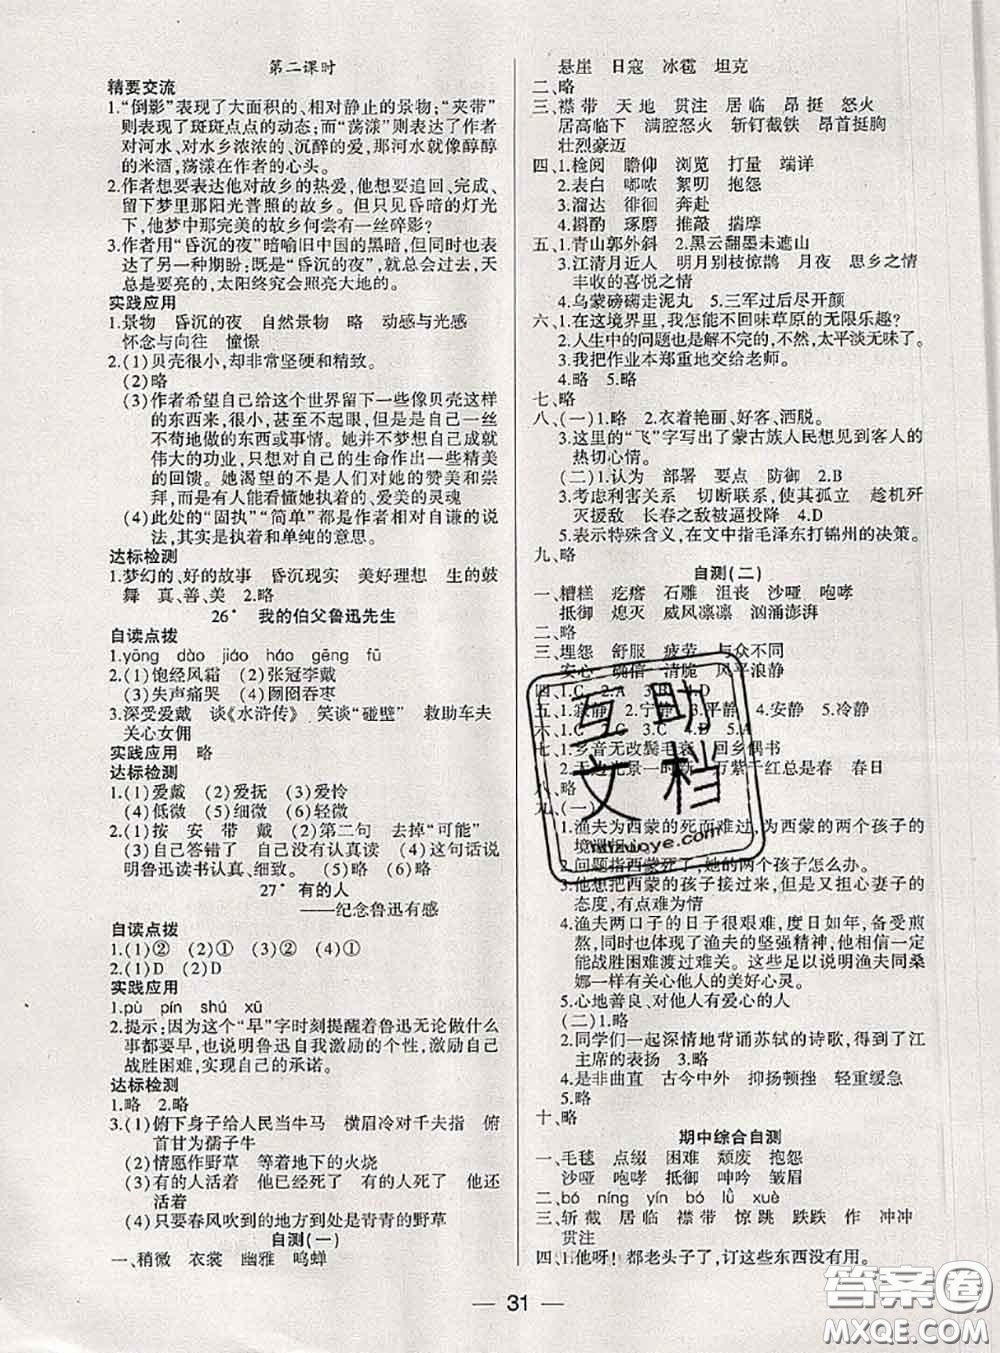 第二课时
精要交流
1.“倒影”表现了大面积的、相对静止的景物;“夹带”
则表现了斑斑点点的动态;而“荡漾”则表达了作者
对河水、对水乡浓浓的、沉醉的爱,那河水就像醇醇
的米酒,荡漾在作者的心头。
2.作者想要表达他对故乡的热爱,他想要追回、完成、
留下梦里那阳光普照的故乡。但只见昏暗的灯光
下,他梦中那完美的故乡何尝有一丝碎影?
3.作者用“昏沉的夜”暗喻旧中国的黑暗,但作者表
达了另一种期盼;既是“昏沉的夜”,就会过去,天
总是要亮的,太阳终究会照亮大地的。
实践应用
1.景物 昏沉的夜 自然景物 略 动感与光感
怀念与向往 憧憬
2.(1)贝壳很小,却非常坚硬和精致。
(2)略
(3)作者希望自己给这个世界留下一些像贝壳这样
的东西来,很小,甚至不起眼,但是是自己一丝
不苟地做的东西或事情。她并不梦想自己成就
伟大的功业,只想对自己的生命作出一些精美
的回馈。她渴望的不是人们对她的赞美和崇
拜,而是有人能看懂她执着的、爱美的灵魂
(4)此处的“固执”“简单”都是作者自谦的说
法,其实是执着和单纯的意思。
达标检测
1.梦幻的、好的故事 昏沉现实 美好理想 生的鼓
舞 真、善、美 2.略
26* 我的伯父鲁迅先生
自读点拨
1.yōng dào jiáo háo gēng fū
2.(1)饱经风霜 (2)张冠李戴
(3)失声痛哭 (4)囫囵吞枣
3.深受爱戴 谈《水浒传》 笑谈“碰壁” 救助车夫
关心女佣
实践应用 略
达标检测
1.(1)爱戴 (2)爱抚 (3)爱怜
(4)低微 (5)细微 (6)轻微
2.(1)按 安 带 戴 (2)第二句 去掉“可能”
(3)自己答错了 自己没有认真读 (4)这句话说
明鲁迅读书认真、细致。 (5)略
27* 有的人
——纪念鲁迅有感
自读点拨
1.(1)② (2)① (3)② (4)①
2.(1)D (2)D
实践应用
1.pù pín shú xū
2.提示:因为这个“早”字时刻提醒着鲁迅无论做什么
事都要早,也说明鲁迅自我激励的个性,激励自己
战胜困难,实现自己的承诺。
达标检测
1.略 2.略
3.(1)俯下身子给人民当牛马 横眉冷对千夫指 俯
首甘为孺子牛
(2)情愿作野草 等着地下的火烧
(3)有的人活着 他已经死了 有的人死了 他还
活着
(4)只要春风吹到的地方到处是青青的野草
自测(一)
一、稍微 衣裳 幽雅 鸣蝉
悬崖 日寇 冰雹 坦克
二、略
三、襟带 天地 贯注 居临 昂挺 怒火
居高临下 满腔怒火 斩钉截铁 昂首挺胸
壮烈豪迈
四、1.检阅 瞻仰 浏览 打量 端详
2.表白 嘟哝 絮叨 抱怨
3.溜达 徘徊 奔赴
4.斟酌 琢磨 推敲 揣摩
五、1.青山郭外斜 2.黑云翻墨未遮山
3.江清月近人 明月别枝惊鹊 月夜 思乡之情
丰收的喜悦之情
4.乌蒙磅礴走泥丸 5.三军过后尽开颜
六、1.在这境界里,我怎能不回味草原的无限乐趣?
2.人生中的问题也是解不完的,不然,太平淡无味了。
3.我把作业本郑重地交给老师。
4.略 5.略
七、略
八、(一)1.略 2.衣着艳丽、好客、洒脱。
3.这里的“飞”字写出了蒙古族人民想见到客人的
热切心情。
(二)1.认为 部署 要点 防御 2.B
3.考虑利害关系 切断联系,使其孤立 趁机歼
灭援敌 长春之敌被逼投降 4.D
5.表示特殊含义,在文中指毛泽东打锦州的决策。
九、略
自测(二)
一、糟糕 疙瘩 石雕 沮丧 沙哑 咆哮
抵御 熄灭 威风凛凛 汹涌澎湃
二、略
三、埋怨 舒服 疲劳 与众不同
安心 确信 清脆 风平浪静
四、1.C 2.A 3.B 4.D
五、1.寂静 2.宁静 3.平静 4.安静 5.冷静
六、1.C 2.C 4.C 5.A
七、1.乡音无改鬓毛衰 回乡偶书
2.无边光景一时新 万紫千红总是春 春日
八、略
九、(一)
1.渔夫为西蒙的死而难过,为西蒙的两个孩子的
境遇担心
2.问题指西蒙死了,她的两个孩子怎么办。
3.他想把西蒙的孩子接过来,但又担心妻子的
态度,有点难为情
4.渔夫两口子的日子很艰难,度日如年,备受煎
熬,同时也体现了渔夫的坚强精神,他相信一定
能战胜困难渡过难关。这些足以说明渔夫同桑
娜一样有关心他人的美好心灵。
5.心地善良、对他人有爱心。
(二)1.略
2.同学们一起深情地背诵苏轼的诗歌,得到了江
主席的表扬 3.略
4.是非曲直 古今中外 抑扬顿挫 轻重缓急
5.略
十、略
期中综合自测
一、毛毯 点缀 困难 颓废 抱怨
沙哑 咆哮 抵御 呻吟 皱眉
二、bó níng yín bó lǜ xuè
三、斩截 居临 襟带 惊跳 跌跌 作 冲冲
贯注
四、1.他呀!都老头子了,订这些东西没有用。
互助
文档
huzuwoye.com
答案圈
MXQE.COM
— 31 —